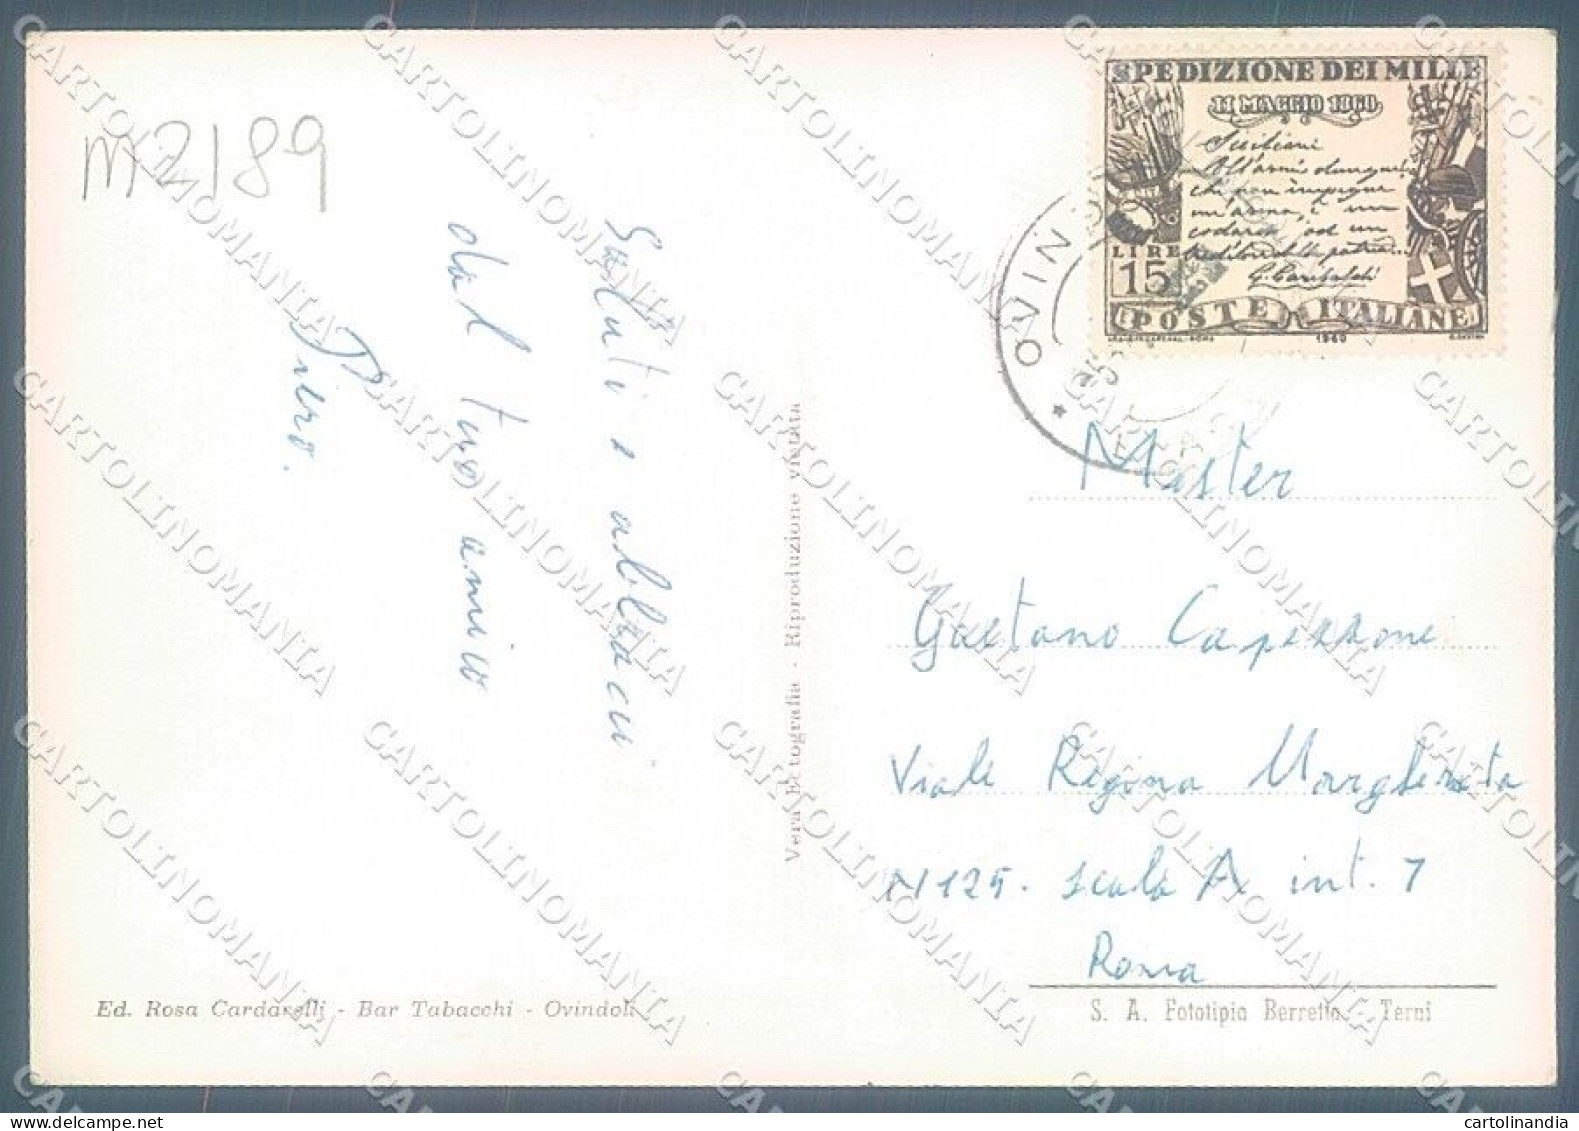 m2189
SPEDIZIONE DEI MILLE
11 MAGGIO 1860
Siciliani
All'armi dunque!
chi non impugna
un'arma, è un
codardo od un
traditore della patria...
G. Garibaldi
LIRE
15
POSTE ITALIANE
1960
OVINDOLI
Saluti e abbracci
dal tuo amico
Piero.
Vera Fotografia - Riproduzione vietata
Master
Gaetano Capezzone
Viale Regina Margherita
N 125. scala A int. 7
Roma
Ed. Rosa Cardarelli - Bar Tabacchi - Ovindoli
S. A. Fototipia Berretta - Terni
CARTOLINOMANIA
cartolinandia